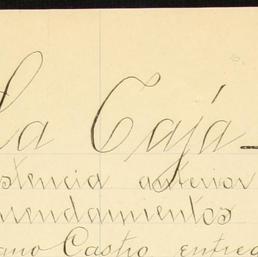 La Cajá
stencia anterior
rrendamientos
ano Castro entreg